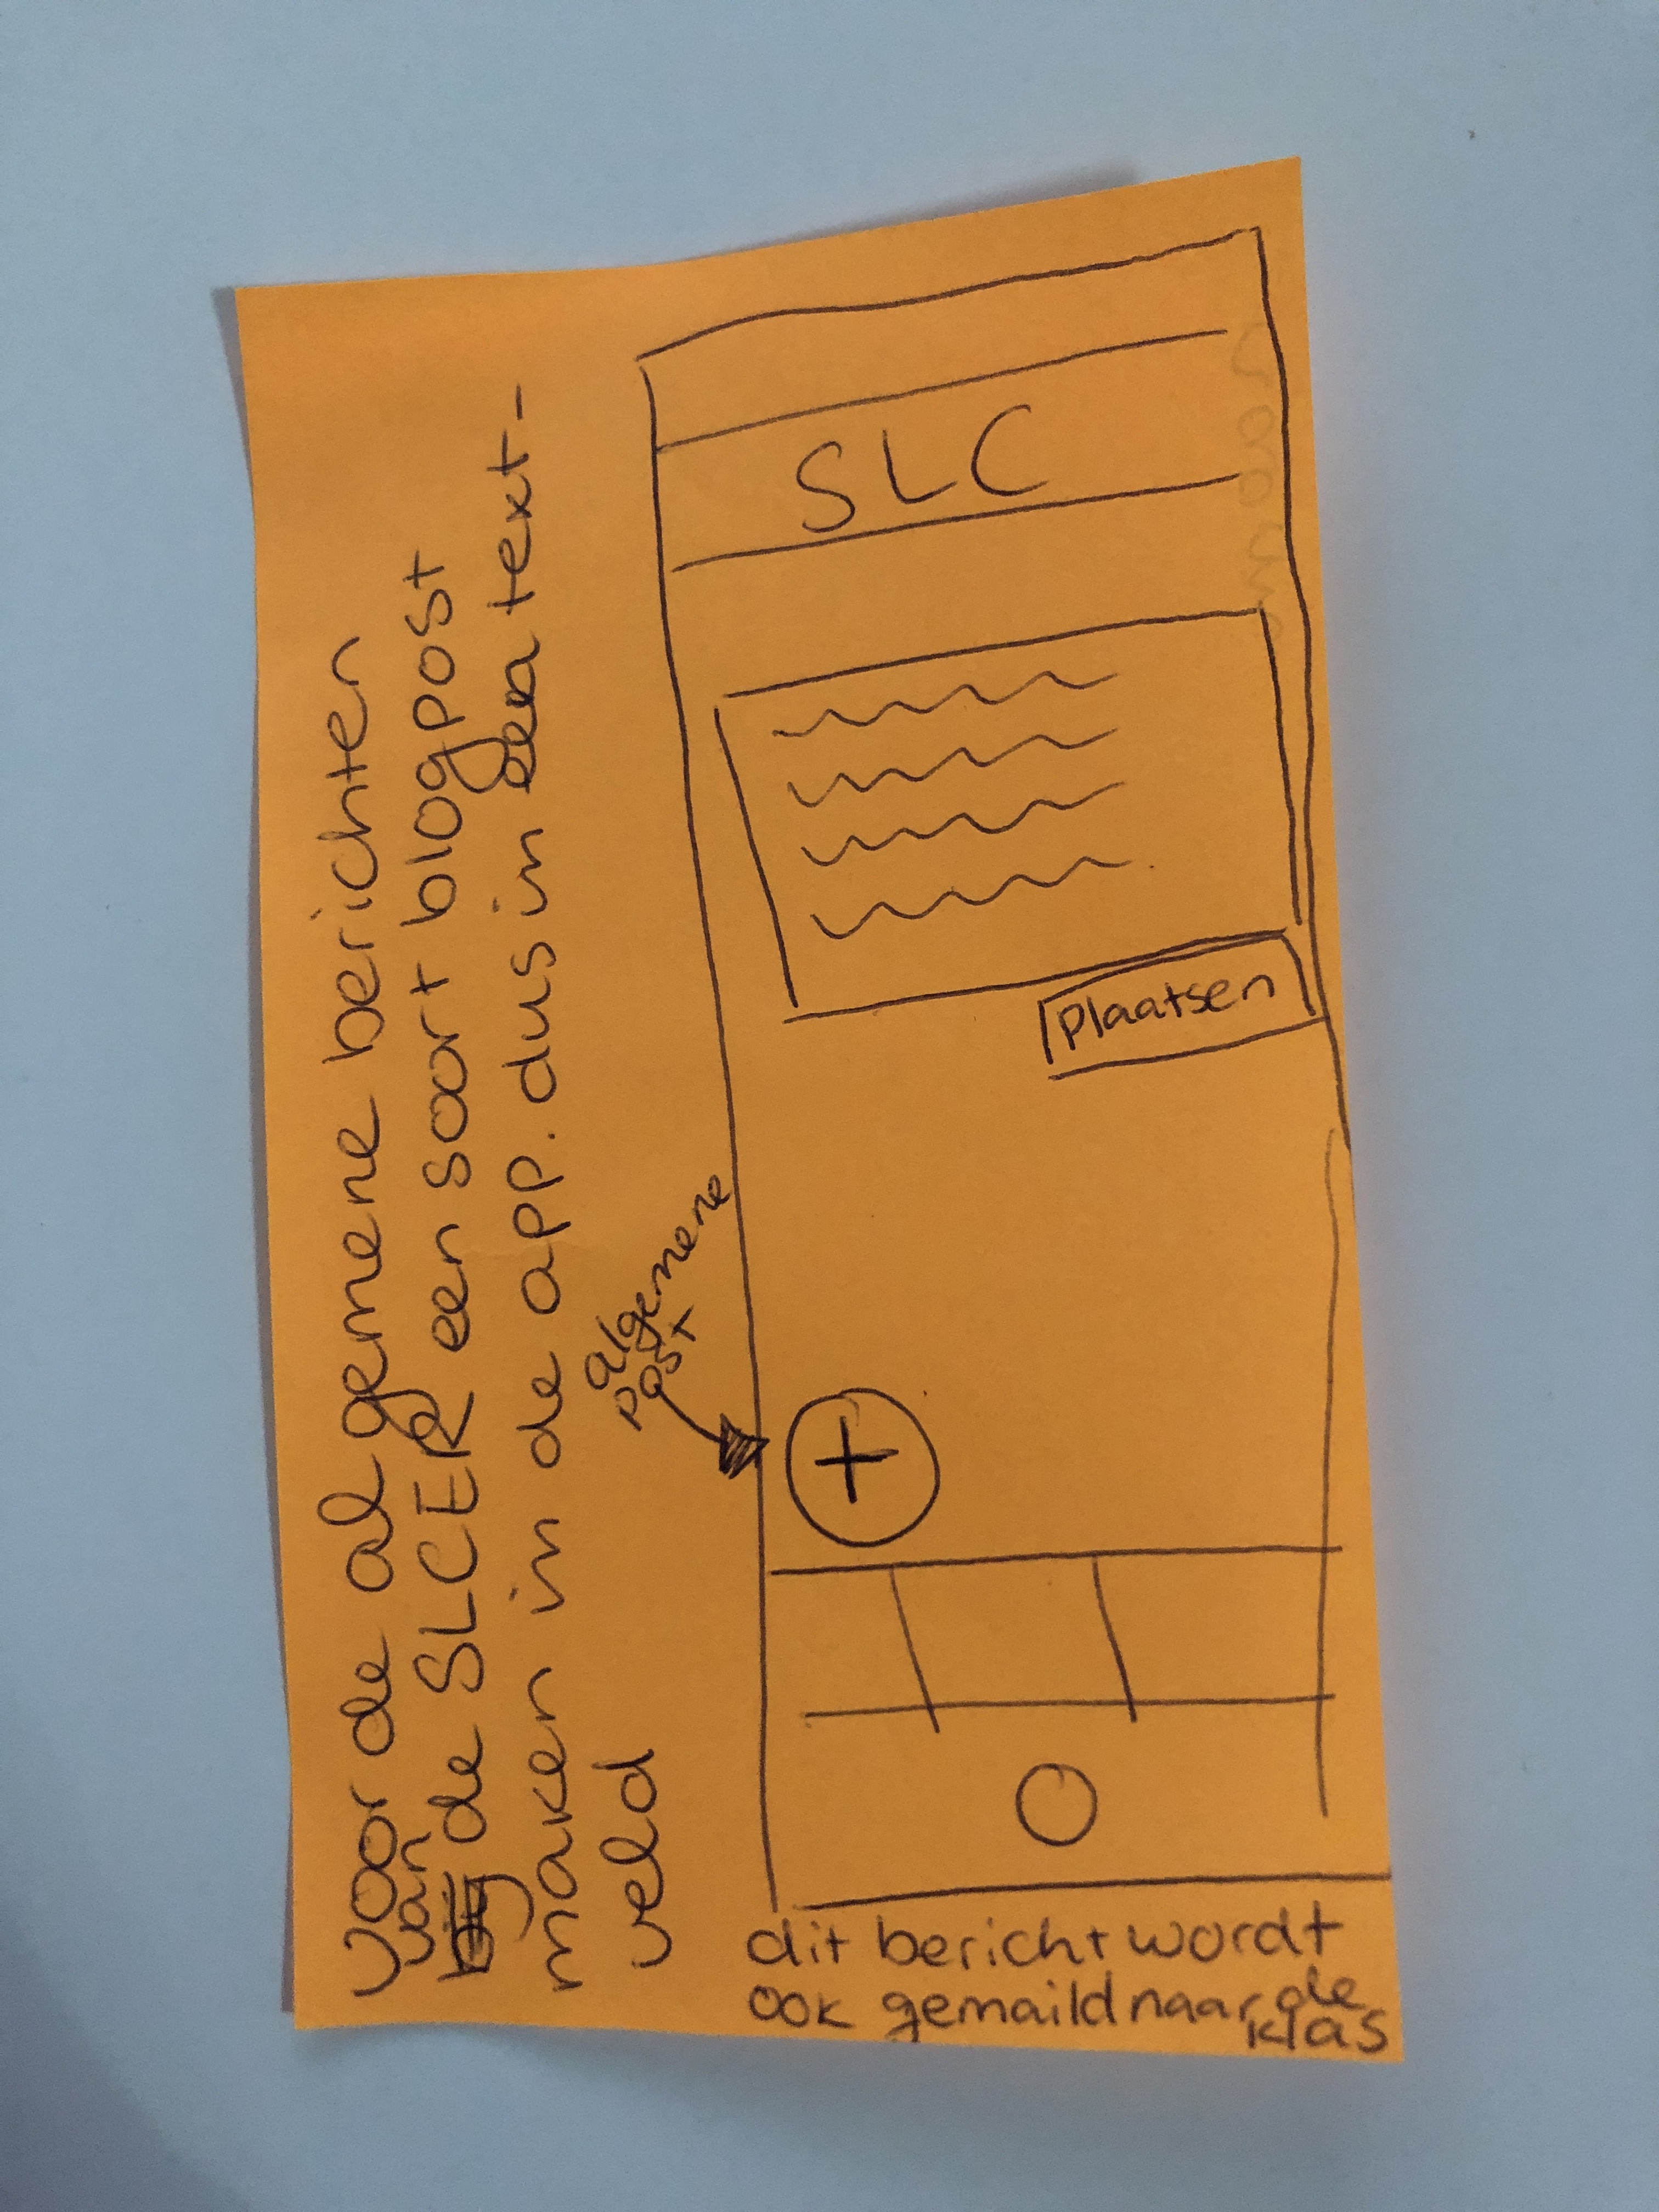 voor de algemene berichten
van
de SLCER een soort blogpost
maken in de app. dus in een text-
veld
algemene
post
SLC
Plaatsen
+
dit bericht wordt
ook gemaild naar de
klas